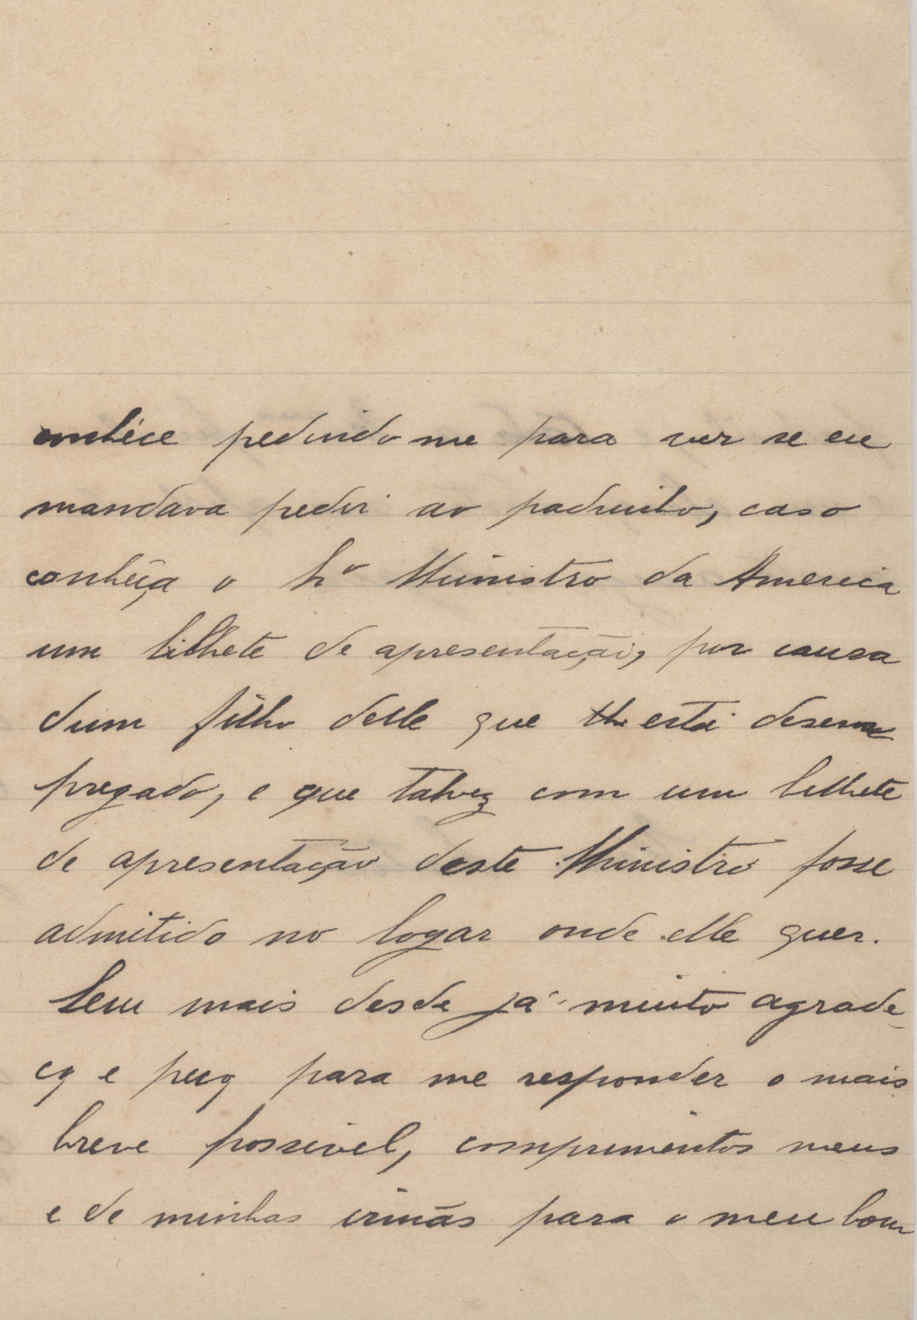 conhéce pedindo me para ver se eu
mandava pedir ao padrinho, caso
conhéça o Snr Ministro da America
um bilhete de apresentação, por causa
dum filho delle que está desem
pregado, e que talvez com um bilhete
de apresentação deste Ministro fosse
admitido no logar onde elle quer.
Sem mais desde já muito agrade-
ço e peço para me responder o mais
breve possivel, comprimentos meus
e de minhas irmãs para o meu bom